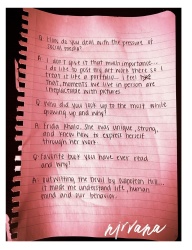 Q: How do you deal with the pressure of
social media?
A: I don't give it that much importance...
I do like to post my art work there so I
treat it like a portfolio... I feel
that moments we live in person are
irreplaceable with pictures.
Q: Who did you look up to the most while
growing up and why?
A: Frida Khalo. She was unique, strong,
and knew how to express herself
through her work.
Q: favorite book you have ever read
and why?
A: Outwitting the Devil by Napoleon Hill...
it made me understand life, human
mind and our behavior.
nirvana